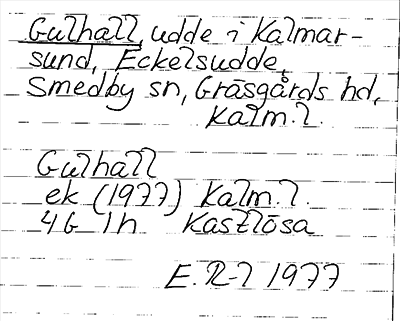 Gulhall, udde i Kalmar-
sund, Eckelsudde,
Smedby sn, Gräsgårds hd,
Kalm. l.
Gulhall
ek (1977) Kalm. l.
4G 1h Kastlösa
E. R-l 1977